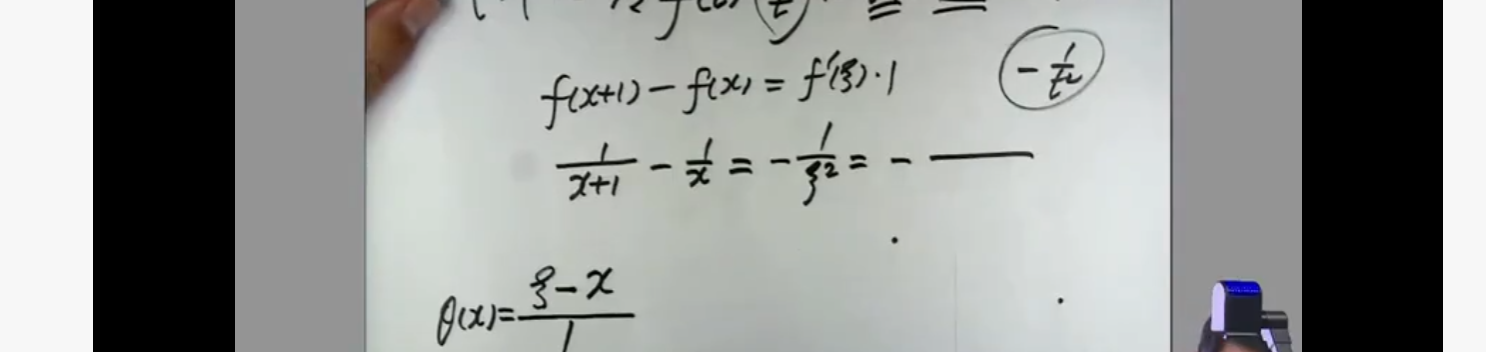 f(x+1) - f(x) = f'(ξ)·1
- 1/t²
1/(x+1) - 1/x = - 1/ξ² = - ——
θ(x) = (ξ - x)/1